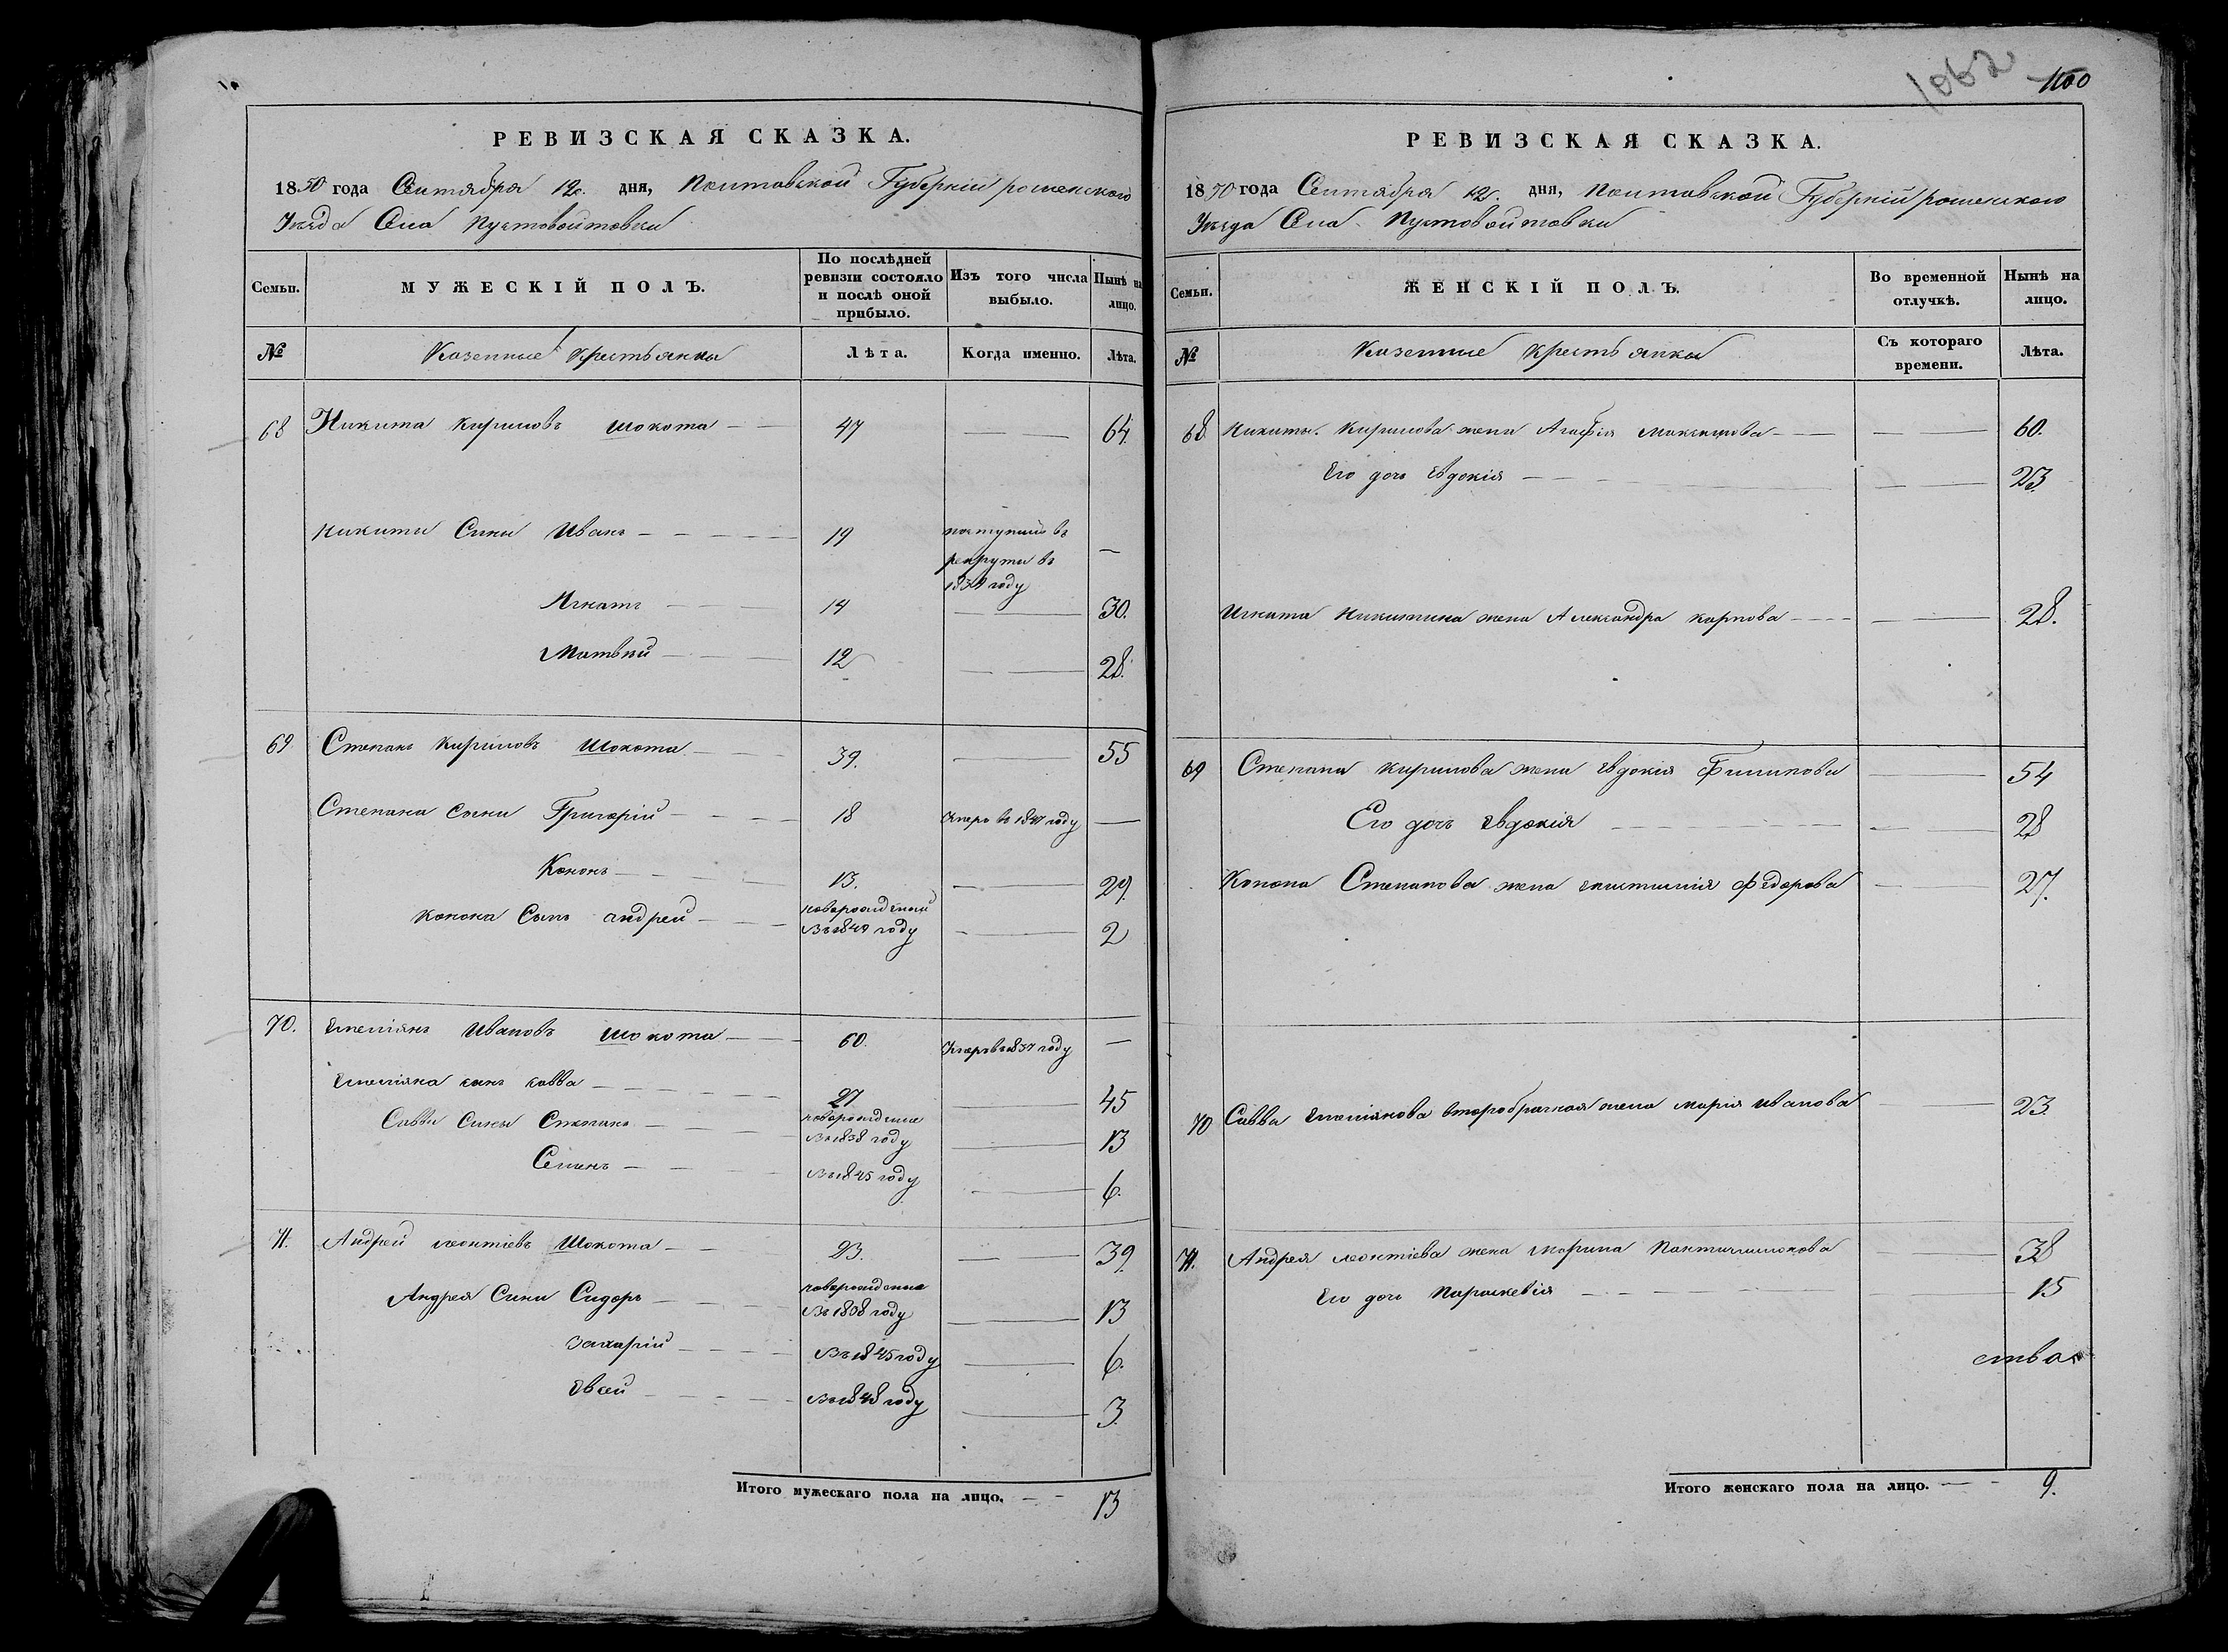 РЕВИЗСКАЯ СКАЗКА.
1850 года Сентября 12 дня, Полтавской Губерніи роменского
Уезда Села Пустовойтовки
Семьи. МУЖЕСКІЙ ПОЛЪ. По послѣдней ревизіи состояло и послѣ оной прибыло. Изъ того числа выбыло. Нынѣ на лицо.
№ Казенные Крестьянки Лѣта. Когда именно. Лѣта.
68 Никита Кириловъ Шокота 47 64
Никиты Сины Иванъ 19 поступилъ въ рекруты въ году —
Игнатъ 14 30.
Матвѣй 12 28.
69 Степанъ Кириловъ Шокота 39. 55
Степана Сыны Григорій 18 Умеръ въ году —
Кононъ 13. 29.
Конона Сынъ андрей новорожденый году 2
70. Емеліянъ Ивановъ Шокота 60. Умеръ въ 1837 году —
Емеліяна сынъ савва 27 45
Саввы Сины Степанъ новорожденые Въ 1838 году 13
Семенъ Въ 1845 году 6.
71. Андрей леонтіевъ Шокота 23. 39.
Андрея Сины Сидоръ новорожденые Въ 1838 году 13
Захарій Въ 1845 году 6.
Евсей Въ 1848 году 3
Итого мужескаго пола на лицо. 13
1062 1100
РЕВИЗСКАЯ СКАЗКА.
1850 года Сентября 12. дня, Полтавской Губерній роменского
Уезда Села Пустовойтовки
Семьи. ЖЕНСКІЙ ПОЛЪ. Во временной отлучкѣ. Нынѣ на лицо.
№ Казенные Крестьянки Съ котораго времени. Лѣта.
68 Никиты Кирилова жена Агафія Максимова 60.
Его дочь Евдокія 23.
Игната Никитина жена Александра карпова 28.
69 Степана Кирилова жена Евдокія Филипова 54
Его дочь Евдокія 28
Конона Степанова жена Федорова 27.
70 Савва Емеліянова второбрачная жена марія иванова 23.
71. Андрея леонтіева жена Марина 38
Его дочь Параскевія 15
ства
Итого женскаго пола на лицо. 9.